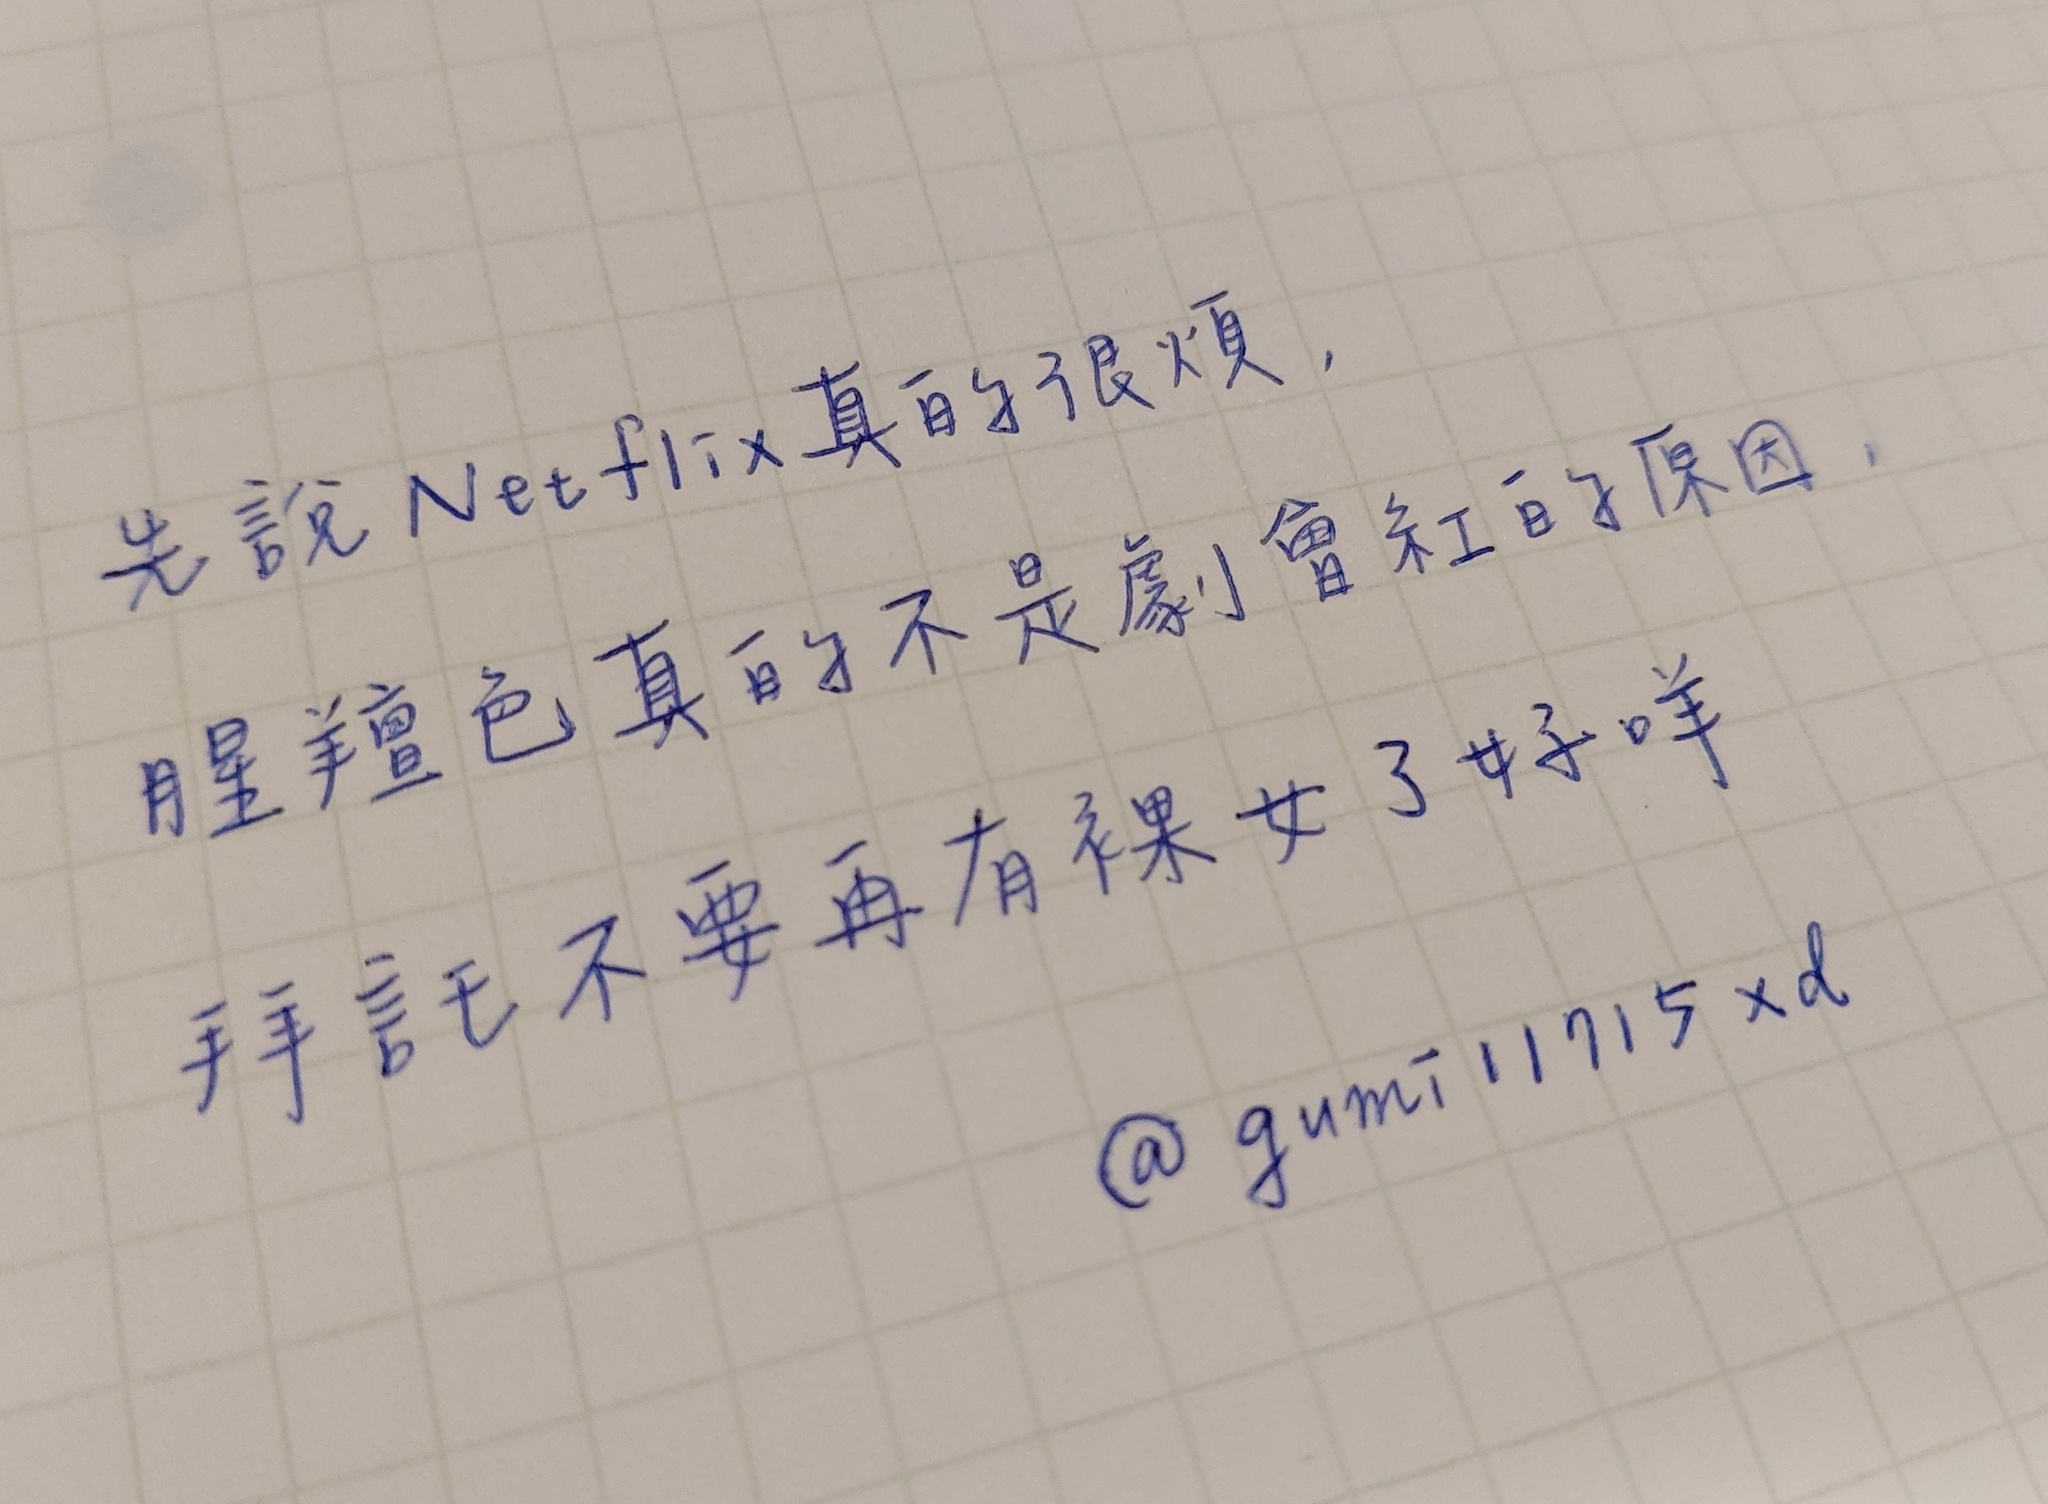 先說Netflix真的很煩,
腥羶色真的不是劇會紅的原因,
拜託不要再有裸女了好咩
@gumi11715xd